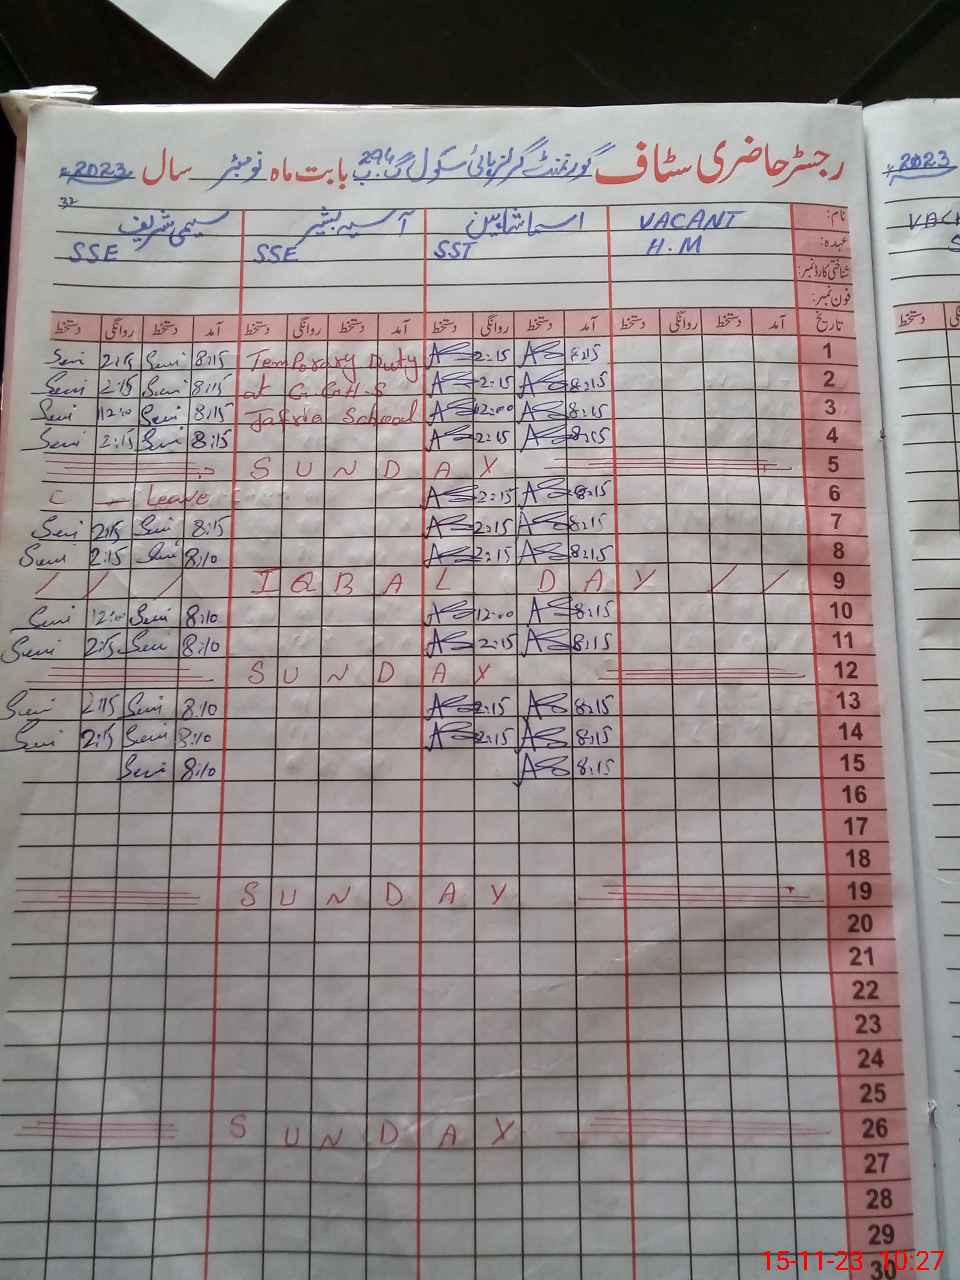 رجسٹر حاضری سٹاف گورنمنٹ گرلز ہائی سکول 294 گ ب بابت ماہ نومبر سال 2023ء
2023
32
نام: VACANT اسما شاہین آسیہ بشیر سیمی شریف
عہدہ: H.M SST SSE SSE
شناختی کارڈ نمبر:
فون نمبر:
تاریخ آمد دستخط روانگی دستخط آمد دستخط روانگی دستخط آمد دستخط روانگی دستخط آمد دستخط روانگی دستخط
دستخط
Semi 2:15 Semi 8:15 Temporary Duty AS 2:15 AS 8:15 1
Semi 2:15 Semi 8:15 at G.G.H.S AS 2:15 AS 8:15 2
Semi 12:00 Semi 8:15 Jafria School AS 12:00 AS 8:15 3
Semi 2:15 Semi 8:15 AS 2:15 AS 8:15 4
SUNDAY 5
C - Leave AS 2:15 AS 8:15 6
Semi 2:15 Semi 8:15 AS 2:15 AS 8:15 7
Semi 2:15 Semi 8:10 AS 2:15 AS 8:15 8
IQBAL DAY 9
Semi 12:00 Semi 8:10 AS 12:00 AS 8:15 10
Semi 2:15 Semi 8:10 AS 2:15 AS 8:15 11
SUNDAY 12
Semi 2:15 Semi 8:10 AS 2:15 AS 8:15 13
Semi 2:15 Semi 8:10 AS 2:15 AS 8:15 14
Semi 8:10 AS 8:15 15
16
17
18
SUNDAY 19
20
21
22
23
24
25
SUNDAY 26
27
28
29
30
15-11-23 10:27